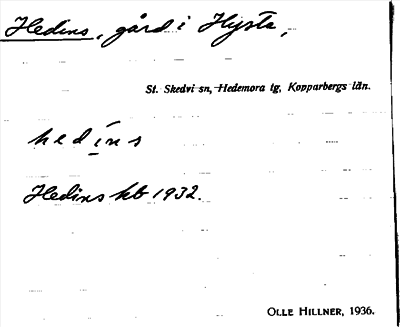 Hedins, gård i Hysta,
St. Skedvi sn, Hedemora tg, Kopparbergs län.
hedi̱ns
Hedins kb 1932.
OLLE HILLNER, 1936.